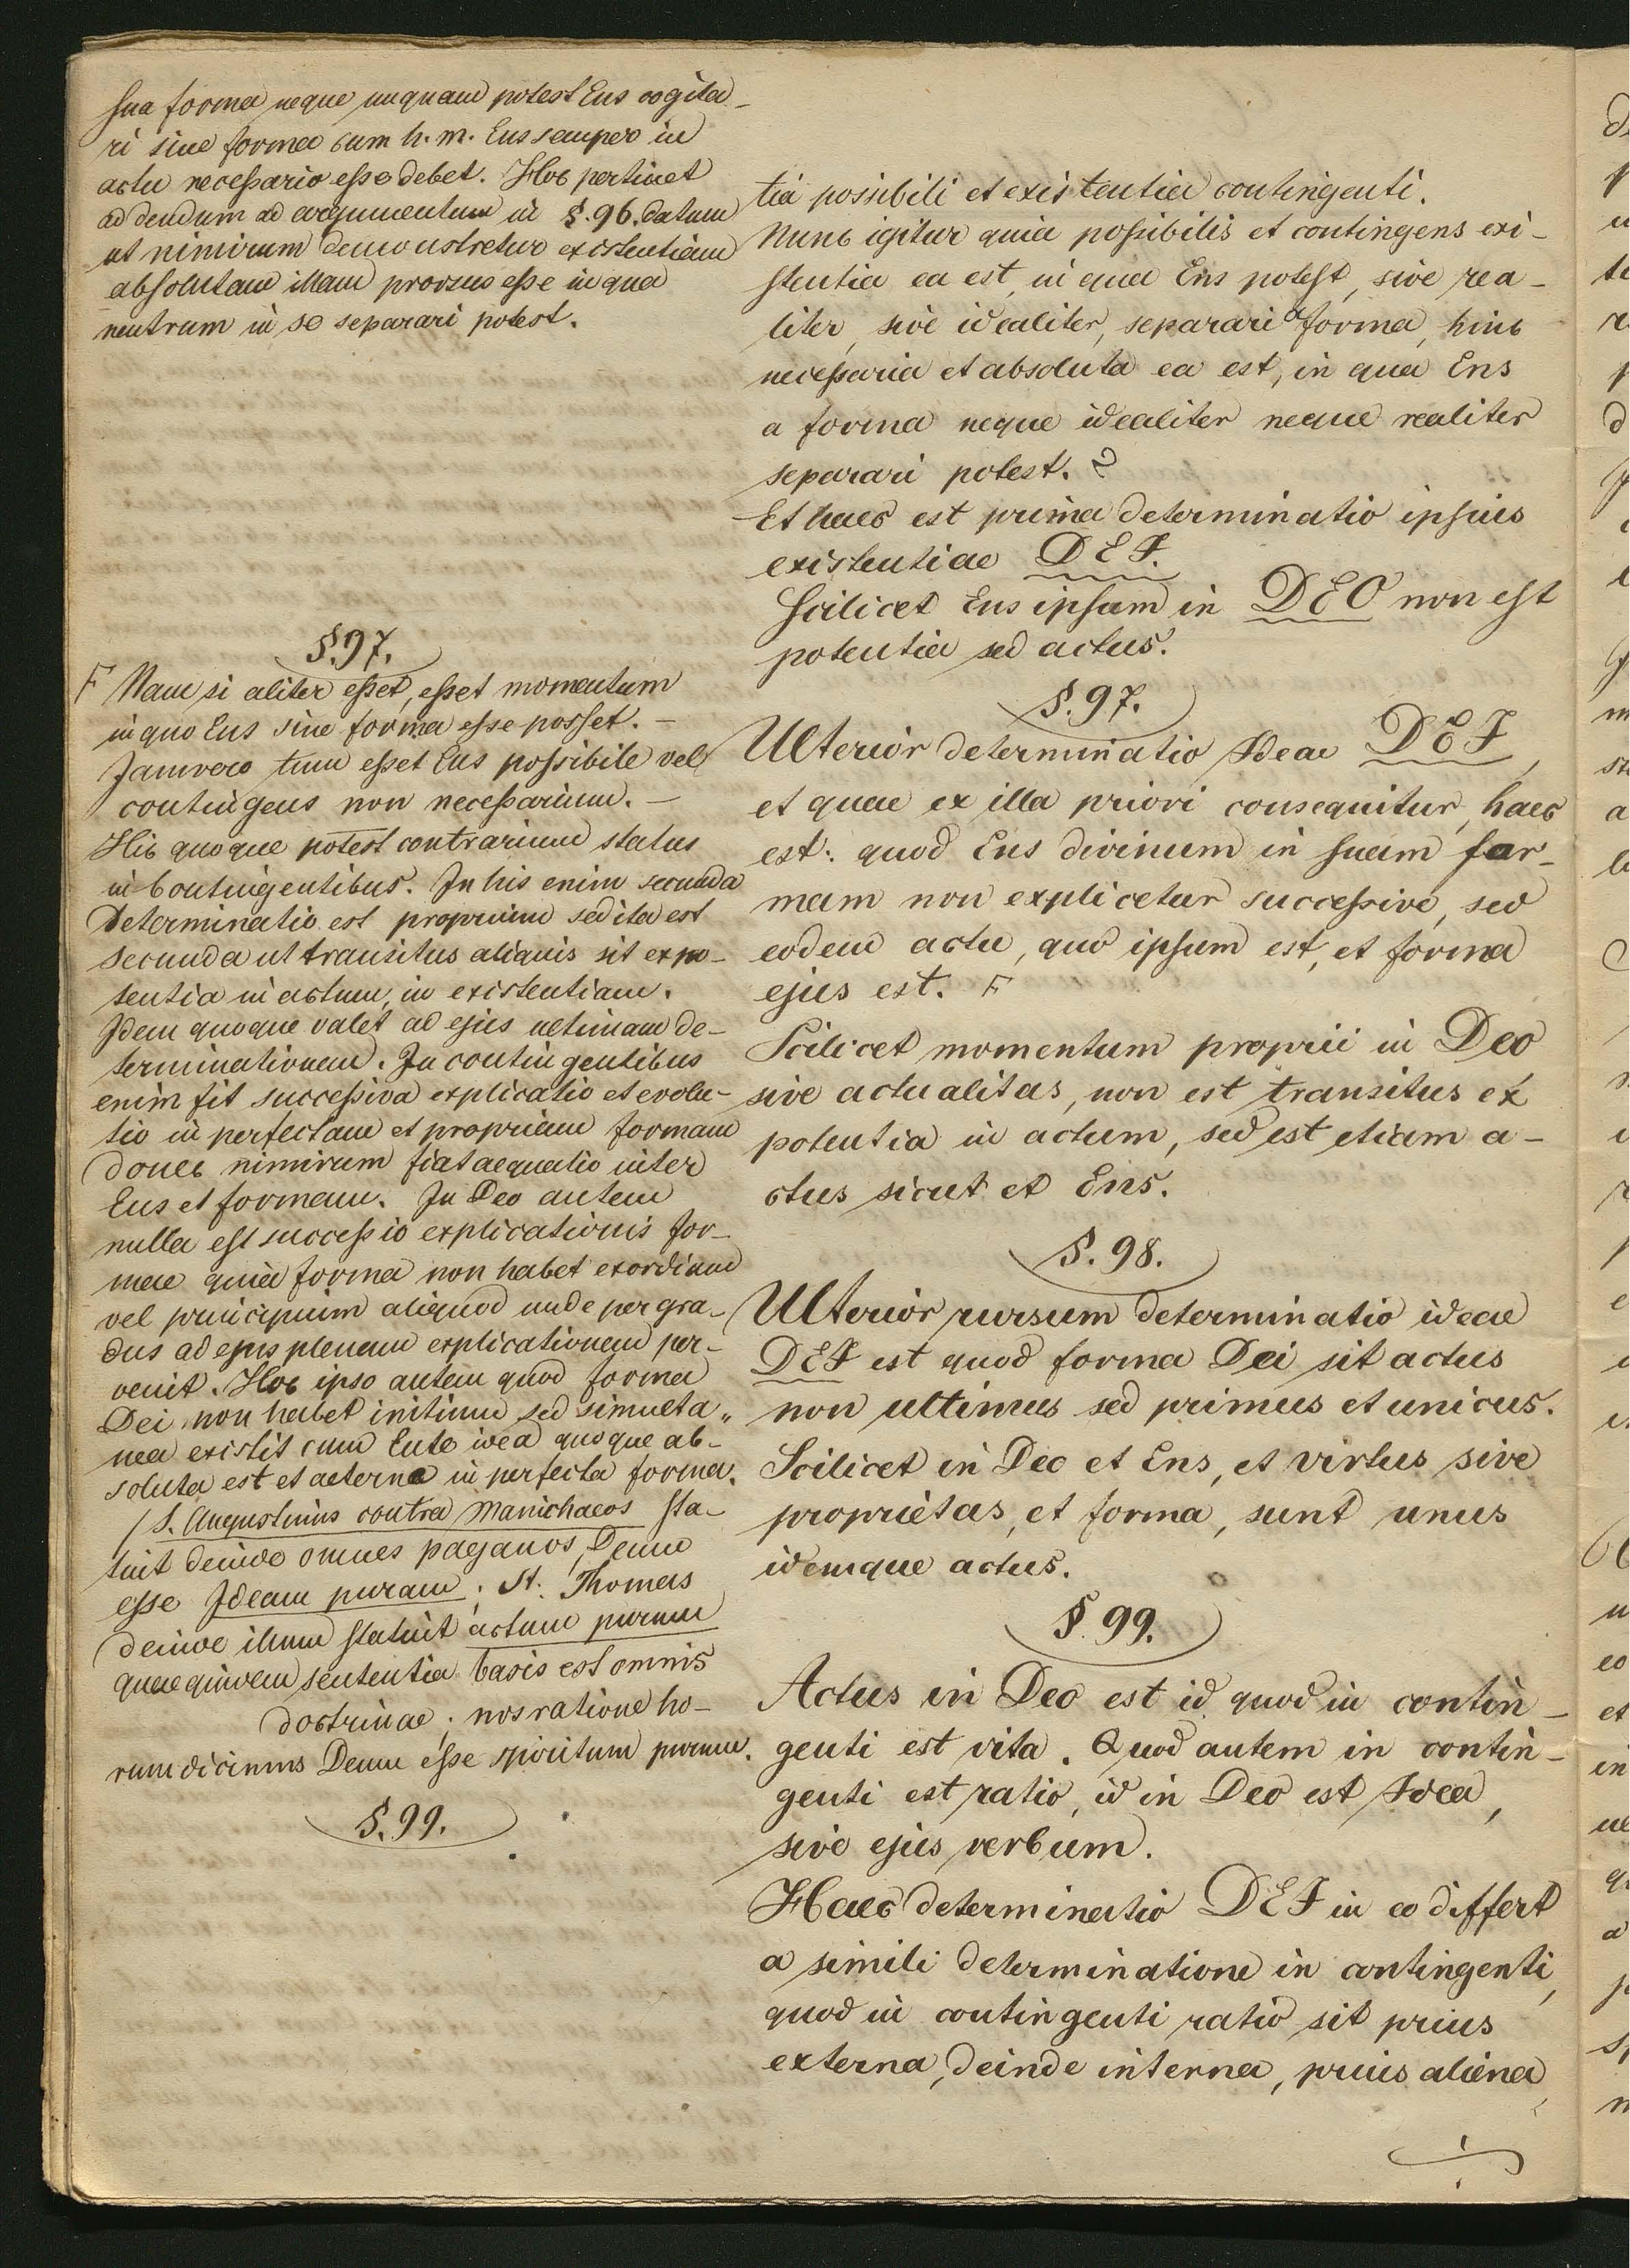 sua forma neque unquam potest Ens cogita-
ri sine forma cum h. m. Ens semper in
actu necessario esse debet. Hoc pertinet
addendum ad argumentum in §. 96. datum
ut nimirum demonstretur existentiam
absolutam illam prorsus esse in qua
neutrum in se separari potest.
§. 97.
F Nam si aliter esset, esset momentum
in quo Ens sine forma esse posset. -
Jamvero tum esset Ens possibile vel
contingens non necessarium. -
Hic quoque potest contrarium status
in contingentibus. In his enim secunda
determinatio est proprium sed ita est
secunda ut transitus aliquis sit ex po-
tentia in actum, in existentiam.
Idem quoque valet ad ejus ultimam de-
terminationem. In contingentibus
enim fit successiva explicatio et evolu-
tio in perfectam et propriam formam
donec nimirum fiat aequatio inter
Ens et formam. In Deo autem
nulla est successio explicationis for-
mae quia forma non habet exordium
vel principium aliquod unde per gra-
dus ad ejus plenam explicationem per-
venit. Hoc ipso autem quod forma
Dei non habet initium sed simulta-
nea existit cum Ente idea quoque ab-
soluta est et aeterna in perfecta forma.
/ S. Augustinus contra Manichaeos sta-
tuit deinde omnes paganos, Deum
esse Ideam puram; St. Thomas
deinde illum statuit actum purum
quae quidem sententia basis est omnis
doctrinae; nos ratione ho-
rum dicimus Deum esse spiritum purum.
§. 99.
tia possibili et existentia contingenti.
Nunc igitur quia possibilis et contingens exi-
stentia ea est, in qua Ens potest, sive rea-
liter, sive idealiter, separari a forma, hinc
necessaria et absoluta ea est, in qua Ens
a forma neque idealiter neque realiter
separari potest. 2
Et haec est prima determinatio ipsius
existentiae DEI.
Scilicet Ens ipsum in DEO non est
potentia sed actus.
§. 97.
Ulterior determinatio Ideae DEI,
et quae ex illa priori consequitur, haec
est: quod Ens divinum in suam for-
mam non explicetur successive, sed
eodem actu, quo ipsum est, et forma
ejus est. F
Scilicet momentum proprii in Deo
sive actualitas, non est transitus ex
potentia in actum, sed est etiam a-
ctus sicut et Ens.
§. 98.
Ulterior rursum determinatio ideae
DEI est quod forma Dei sit actus
non ultimus sed primus et unicus.
Scilicet in Deo et Ens, et virtus sive
proprietas, et forma, sunt unus
idemque actus.
§ 99.
Actus in Deo est id quod in contin-
genti est vita. Quod autem in contin-
genti est ratio, id in Deo est Idea,
sive ejus verbum.
Haec determinatio DEI in eo differt
a simili determinatione in contingenti,
quod in contingenti ratio sit prius
externa, deinde interna, prius aliena,